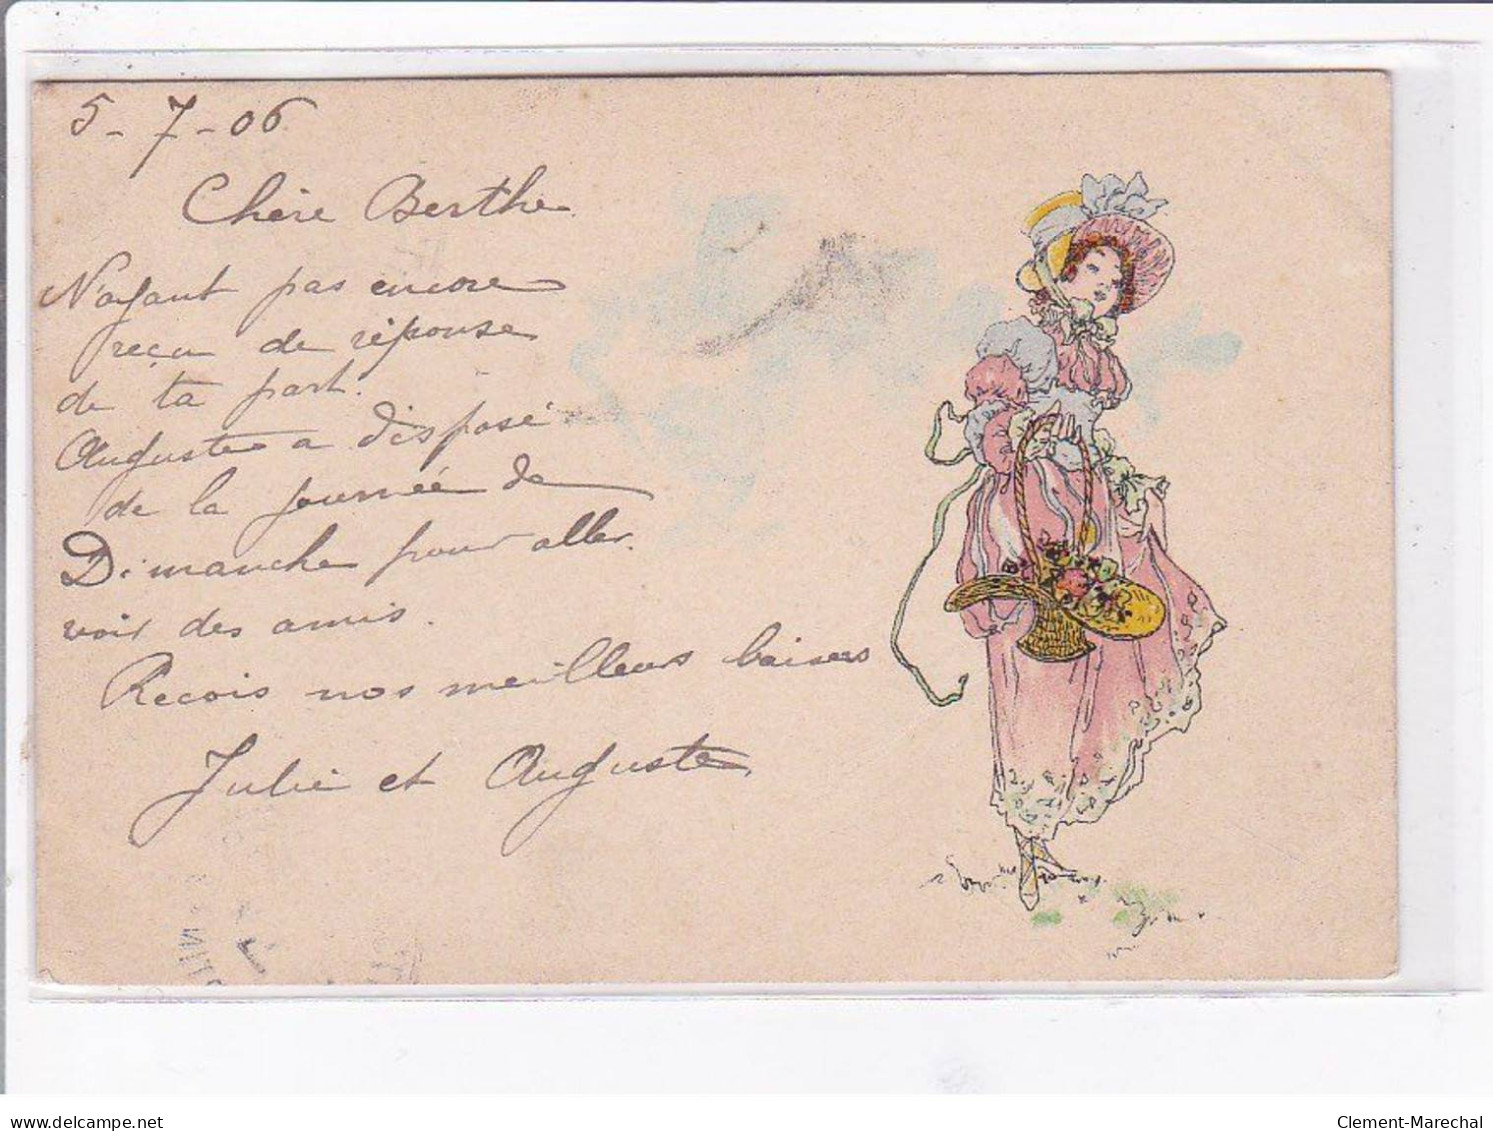 5-7-06
Chère Berthe
N'ayant pas encore
reçu de réponse
de ta part.
Auguste a disposé
de la journée de
Dimanche pour aller
voir des amis.
Reçois nos meilleurs baisers
Julie et Auguste
delcampe.net
Clement-Marechal